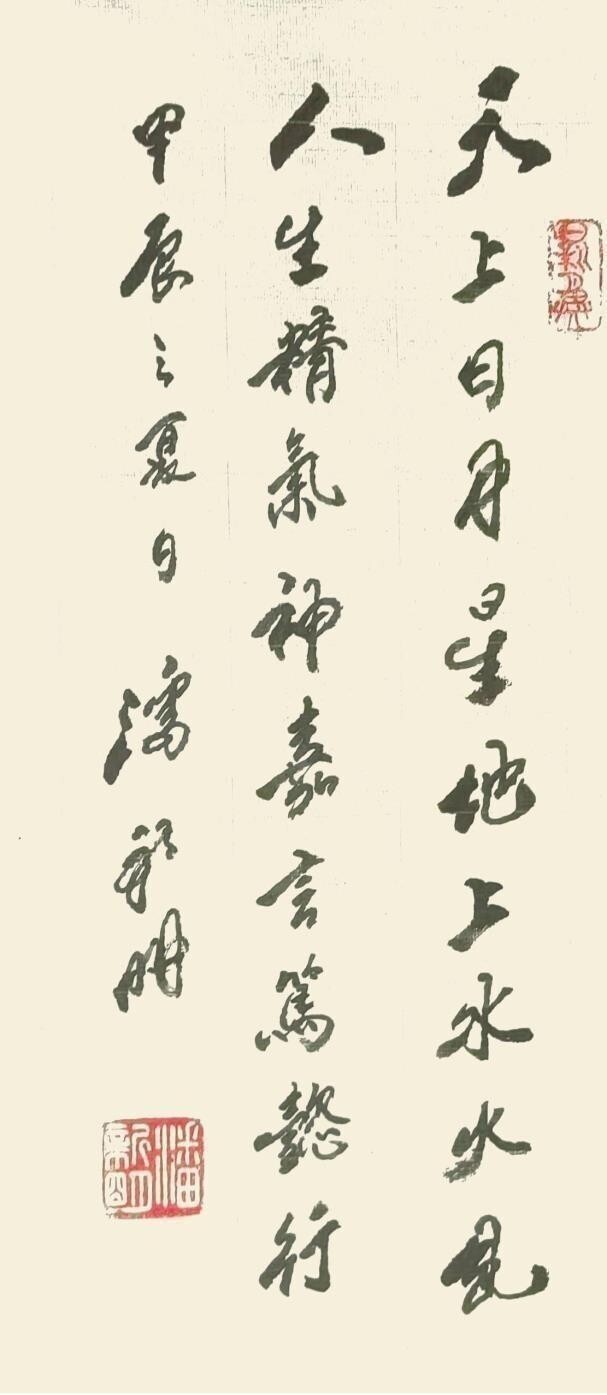 天上日月星地上水火風
人生精氣神嘉言篤懿行
甲辰之夏日 潘新明
潘新明